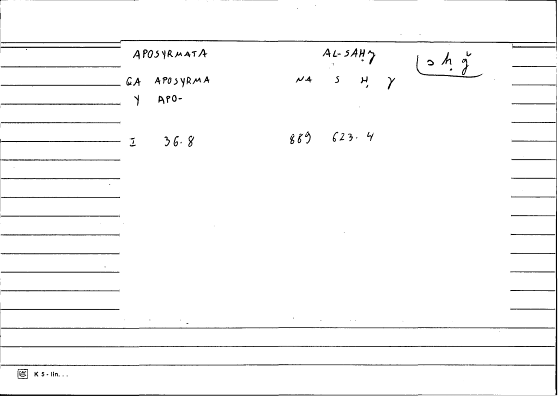 APOSYRMATA AL-SAḤγ
GA APOSYRMA NA S Ḥ γ
Y APO-
I 36.8 889 623.4
K 5 - lin...